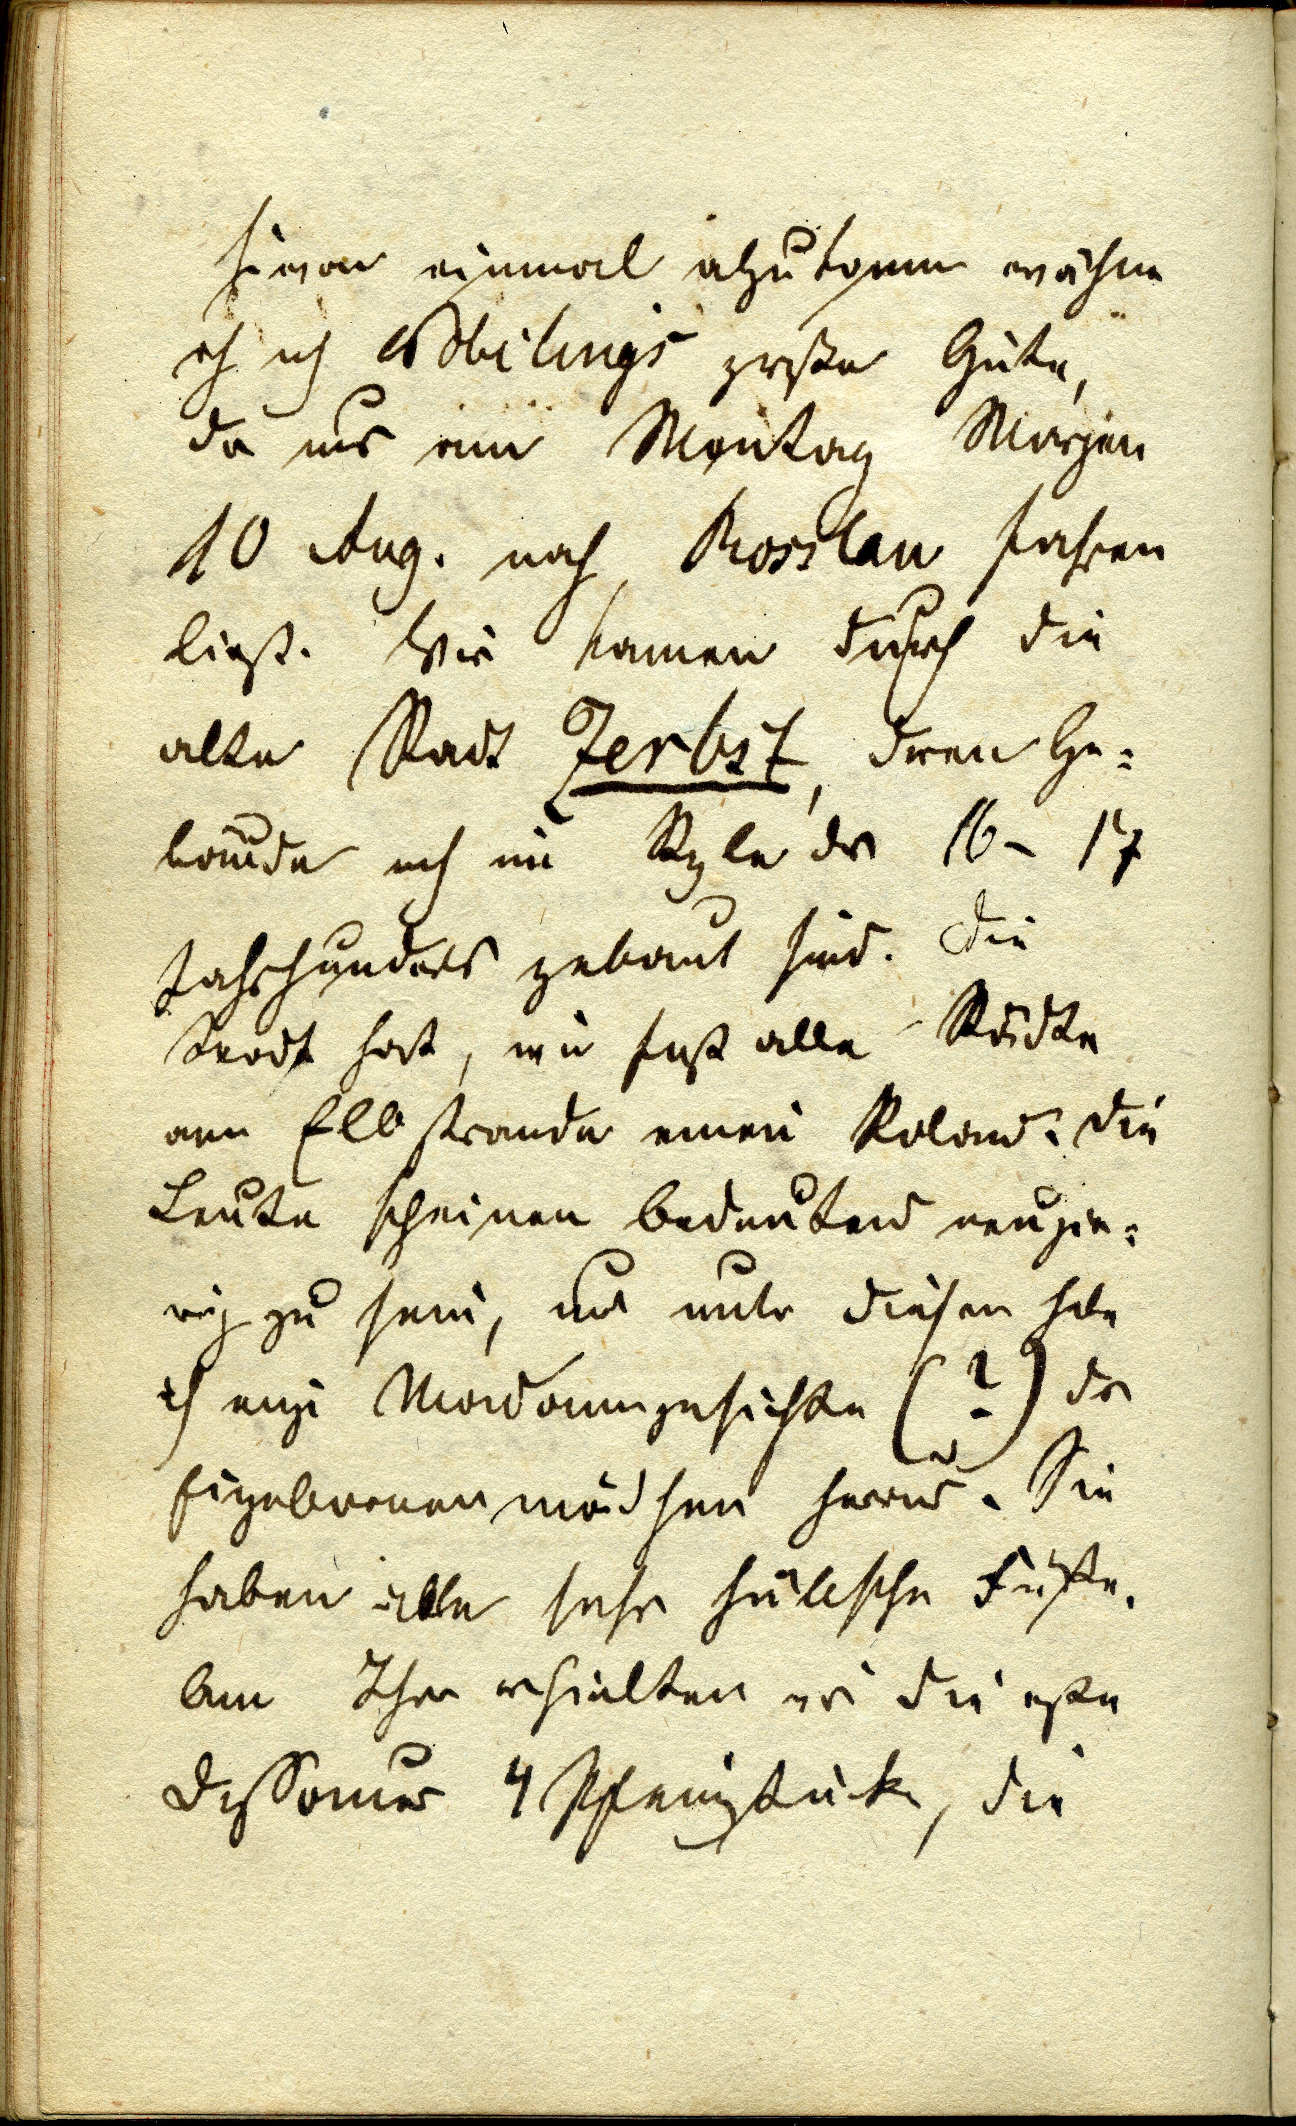 hievon einmal abzukommen erwähne
ich noch Nobilings große Güte,
der uns am Montag Morgen
10 Aug. nach Rosslau fahren
ließ. Wir kamen durch die
alte Stadt Zerbst, deren Ge-
bäude noch im Style des 16-17
Jahrhunderts gebaut sind. Die
Stadt hat, wie fast alle Städte
am Elbstrande einen Roland. Die
Leute scheinen bedeutend neugie-
rig zu sein, und unter diesen hebe
ich einige Madonnengesichter (?) der
Eingeborenenmädchen hervor. Sie
haben alle sehr hübsche Füße.
Am Thor erhielten wir die ersten
Dessauer 4 Pfenigstücke, die